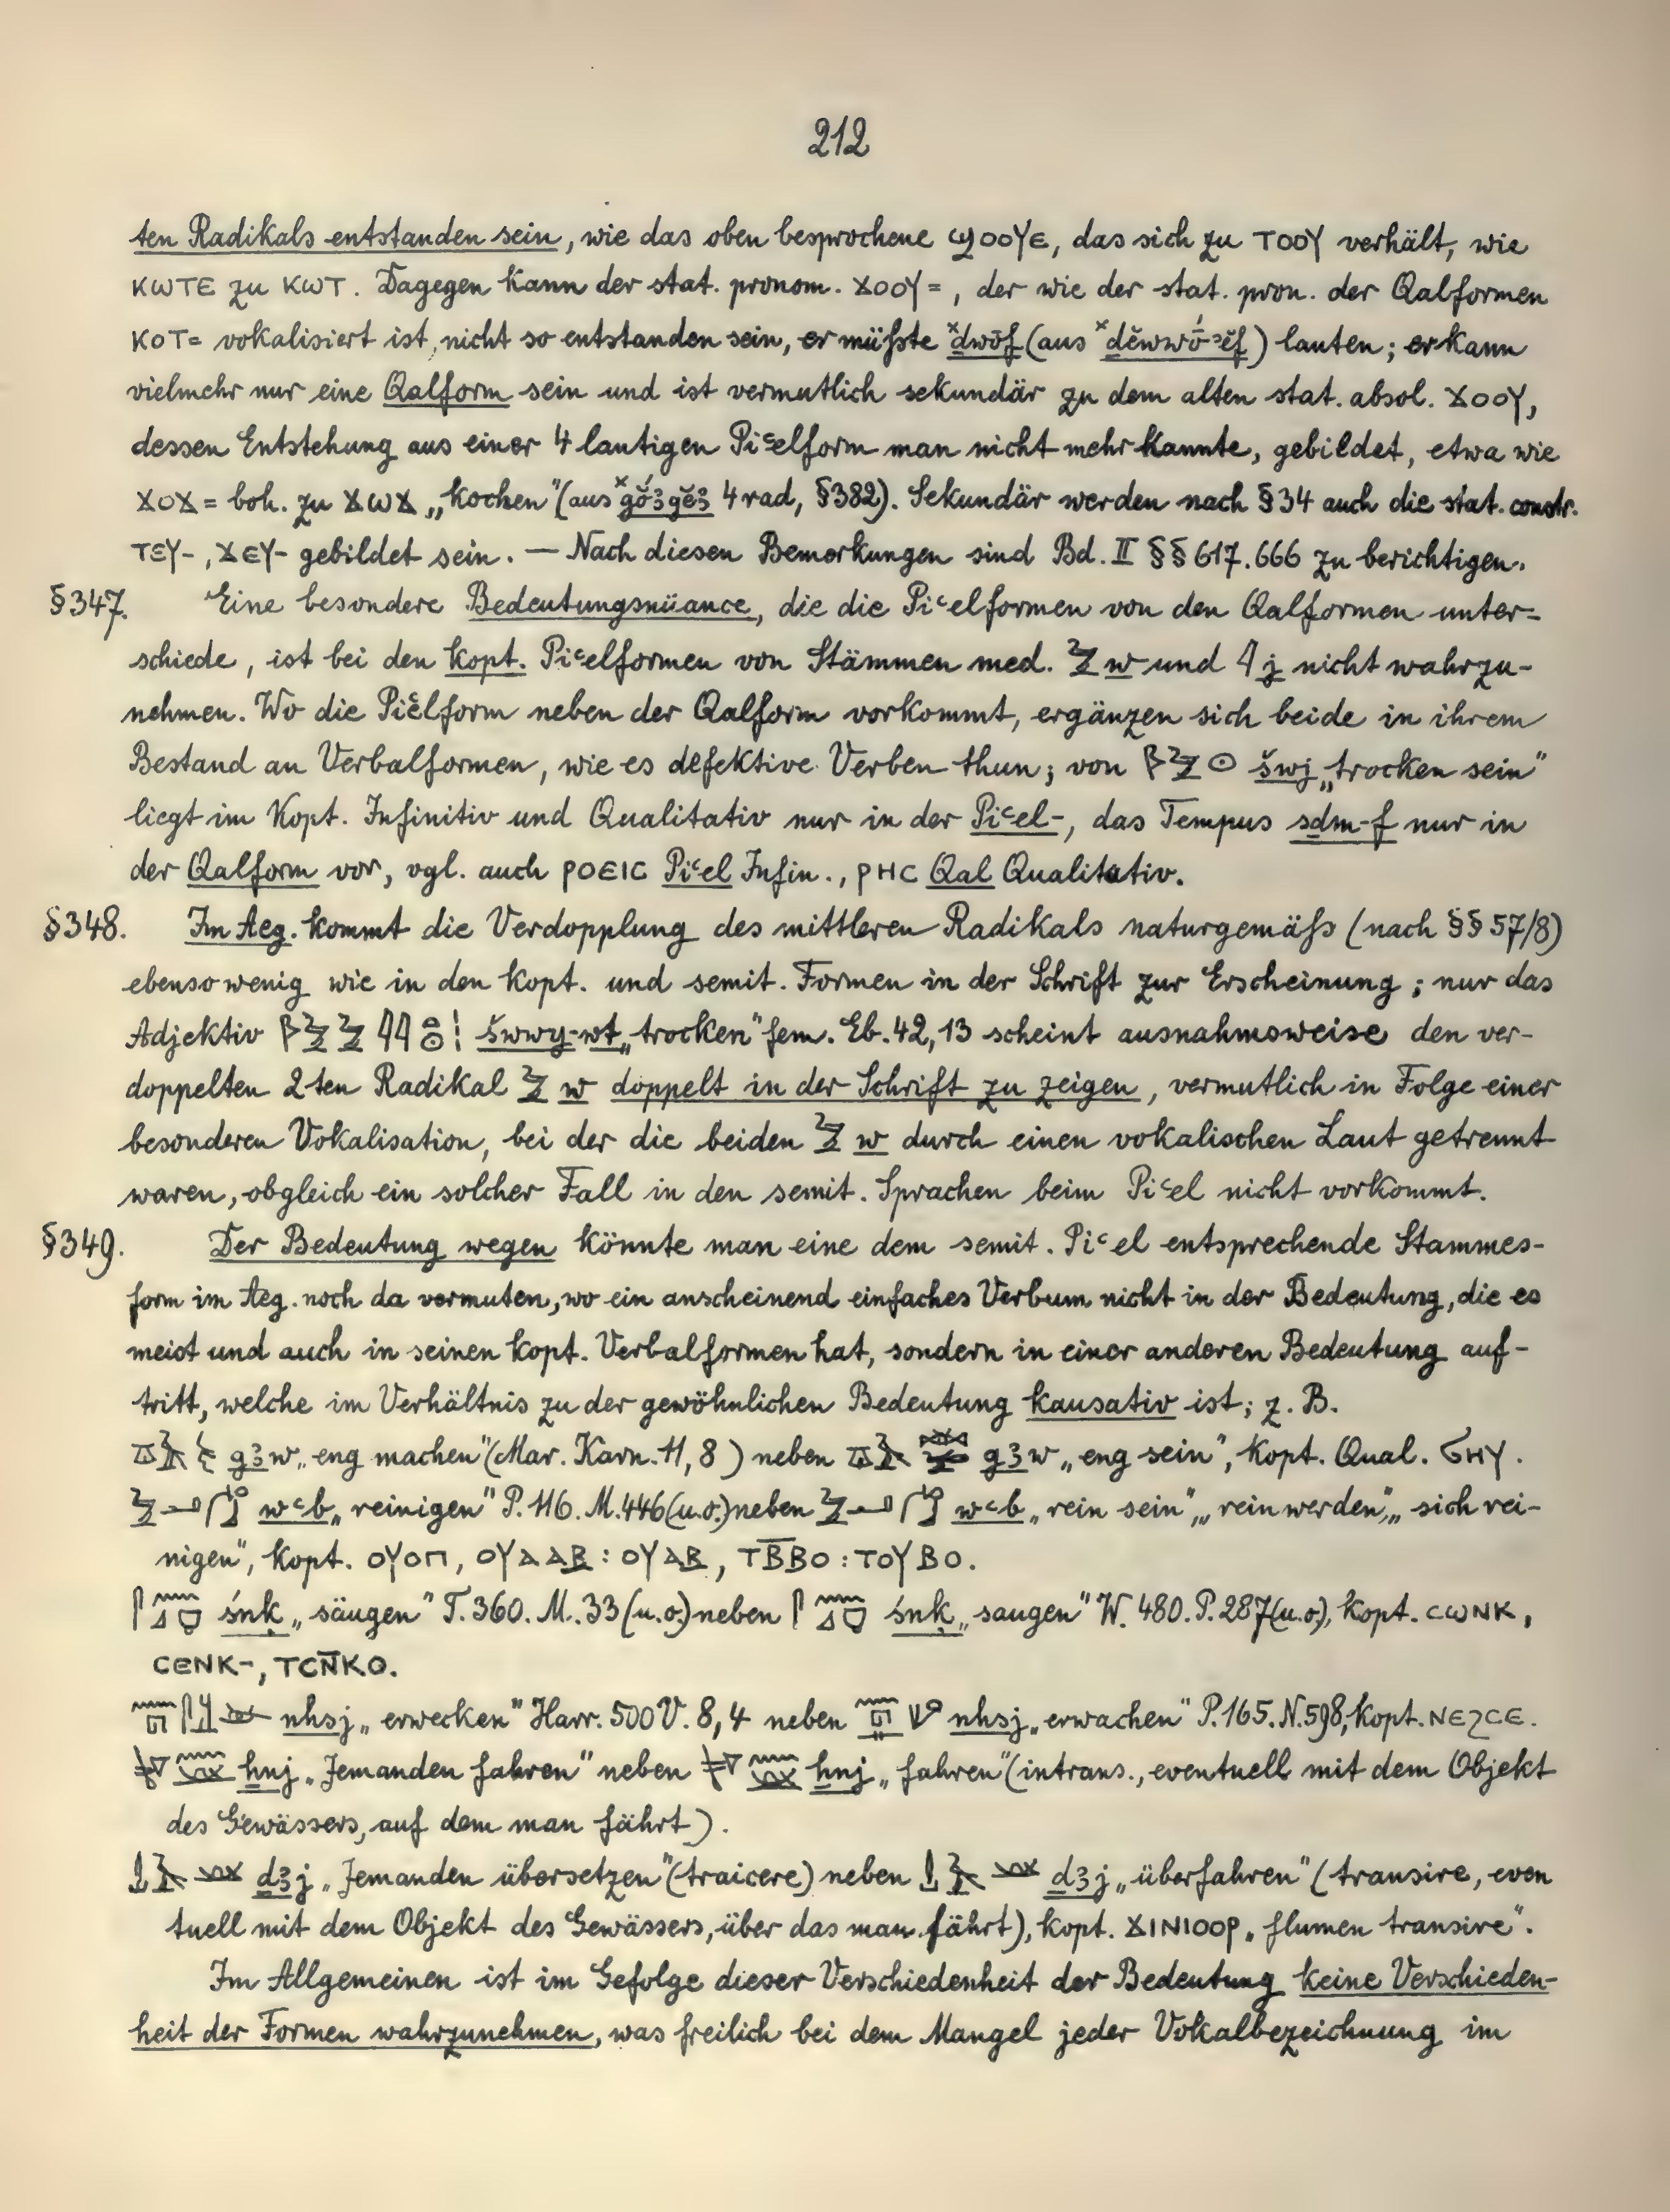 212
ten Radikals entstanden sein, wie das oben besprochene ϣOOYE, das sich zu TOOY verhält, wie
KWTE zu KWT. Dagegen kann der stat. pronom. ϫOOY=, der wie der stat. pron. der Qalformen
KOT= vokalisiert ist, nicht so entstanden sein, er müſste ˣḏwōf (aus ˣḏĕwwō´-ʾĕf) lauten; er kann
vielmehr nur eine Qalform sein und ist vermutlich sekundär zu dem alten stat. absol. ϫOOY,
dessen Entstehung aus einer 4 lautigen Piʿelform man nicht mehr kannte, gebildet, etwa wie
ϫOϫ= boh. zu ϫWϫ „kochen" (aus ˣgŏ́ꜣgĕꜣ 4 rad, §382). Sekundär werden nach §34 auch die stat. constr.
TEY-, ϫEY- gebildet sein. — Nach diesen Bemerkungen sind Bd. II §§ 617. 666 zu berichtigen.
§347. Eine besondere Bedeutungsnüance, die die Piʿelformen von den Qalformen unter-
schiede, ist bei den kopt. Piʿelformen von Stämmen med. 𓅱 w und 𓇋 j nicht wahrzu-
nehmen. Wo die Piʿelform neben der Qalform vorkommt, ergänzen sich beide in ihrem
Bestand an Verbalformen, wie es defektive Verben thun; von 𓆄𓅱𓇳 šwj „trocken sein"
liegt im Kopt. Infinitiv und Qualitativ nur in der Piʿel-, das Tempus sḏm-f nur in
der Qalform vor, vgl. auch POEIC Piʿel Infin., PHC Qal Qualitativ.
§348. Im Aeg. kommt die Verdopplung des mittleren Radikals naturgemäſs (nach §§ 57/8)
ebenso wenig wie in den kopt. und semit. Formen in der Schrift zur Erscheinung; nur das
Adjektiv 𓆄𓅱𓅱𓇋𓇋𓏏𓇳𓏤 šwwy-wt „trocken" fem. Eb. 42, 13 scheint ausnahmsweise den ver-
doppelten 2ten Radikal 𓅱 w doppelt in der Schrift zu zeigen, vermutlich in Folge einer
besonderen Vokalisation, bei der die beiden 𓅱 w durch einen vokalischen Laut getrennt
waren, obgleich ein solcher Fall in den semit. Sprachen beim Piʿel nicht vorkommt.
§349. Der Bedeutung wegen könnte man eine dem semit. Piʿel entsprechende Stammes-
form im Aeg. noch da vermuten, wo ein anscheinend einfaches Verbum nicht in der Bedeutung, die es
meist und auch in seinen kopt. Verbalformen hat, sondern in einer anderen Bedeutung auf-
tritt, welche im Verhältnis zu der gewöhnlichen Bedeutung kausativ ist; z. B.
gꜣw „eng machen" (Mar. Karn. 11, 8) neben gꜣw „eng sein", kopt. Qual. ϭHY.
wʿb „reinigen" P. 116. M. 446 (u.o.) neben wʿb „rein sein", „rein werden", „sich rei-
nigen", kopt. OYOΠ, OYAAB : OYAB, TB̅B̅O : TOYBO.
śnḳ „säugen" T. 360. M. 33 (u.o.) neben śnḳ „saugen" W. 480. P. 287 (u.o.), kopt. CWNK,
CENK-, TCN̅KO.
nhsj „erwecken" Harr. 500 V. 8, 4 neben nhsj „erwachen" P. 165. N. 598, kopt. NEϩCE.
ẖnj „Jemanden fahren" neben ẖnj „fahren" (intrans., eventuell mit dem Objekt
des Gewässers, auf dem man fährt).
ḏꜣj „Jemanden übersetzen" (traicere) neben ḏꜣj „überfahren" (transire, even
tuell mit dem Objekt des Gewässers, über das man fährt), kopt. ϫINIOOP „flumen transire".
Im Allgemeinen ist im Gefolge dieser Verschiedenheit der Bedeutung keine Verschieden-
heit der Formen wahrzunehmen, was freilich bei dem Mangel jeder Vokalbezeichnung im